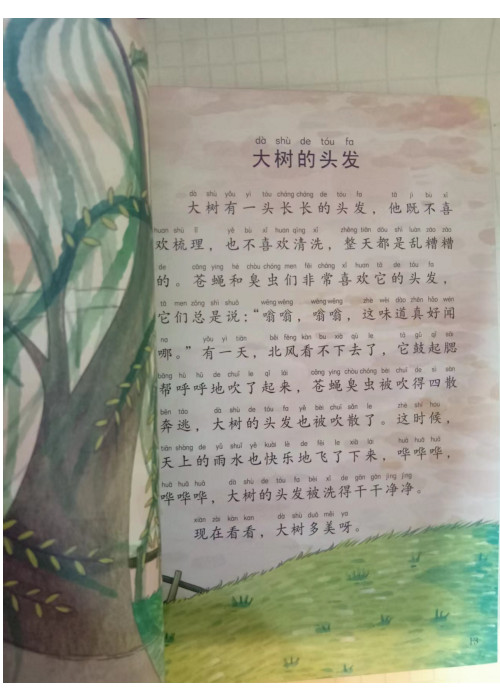 dà shù de tóu fa
大树的头发
dà shù yǒu yì tóu cháng cháng de tóu fa tā jì bù xǐ
大树有一头长长的头发，他既不喜
huan shū lǐ yě bù xǐ huan qīng xǐ zhěng tiān dōu shì luàn zāo zāo
欢梳理，也不喜欢清洗，整天都是乱糟糟
de cāng ying hé chòu chóng men fēi cháng xǐ huan tā de tóu fa
的。苍蝇和臭虫们非常喜欢它的头发，
tā men zǒng shì shuō wēng wēng wēng wēng zhè wèi dào zhēn hǎo wén
它们总是说：“嗡嗡，嗡嗡，这味道真好闻
na yǒu yì tiān běi fēng kàn bu xià qù le tā gǔ qǐ sāi
哪。”有一天，北风看不下去了，它鼓起腮
bāng hū hū de chuī le qǐ lái cāng ying chòu chóng bèi chuī de sì sàn
帮呼呼地吹了起来，苍蝇臭虫被吹得四散
bēn táo dà shù de tóu fa yě bèi chuī sàn le zhè shí hou
奔逃，大树的头发也被吹散了。这时候，
tiān shàng de yǔ shuǐ yě kuài lè de fēi le xià lái huā huā huā
天上的雨水也快乐地飞了下来，哗哗哗，
huā huā huā dà shù de tóu fa bèi xǐ de gān gān jìng jìng
哗哗哗，大树的头发被洗得干干净净。
xiàn zài kàn kan dà shù duō měi ya
现在看看，大树多美呀。